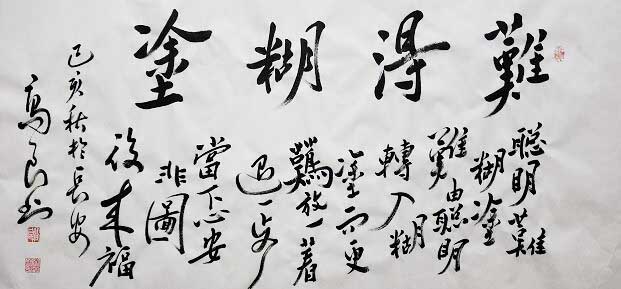 難得糊塗
聰明難
糊塗
難由聰明
轉入糊
塗而更
難放一著
退一步
當下心安
非圖
後來福
己亥秋於長安
高良书